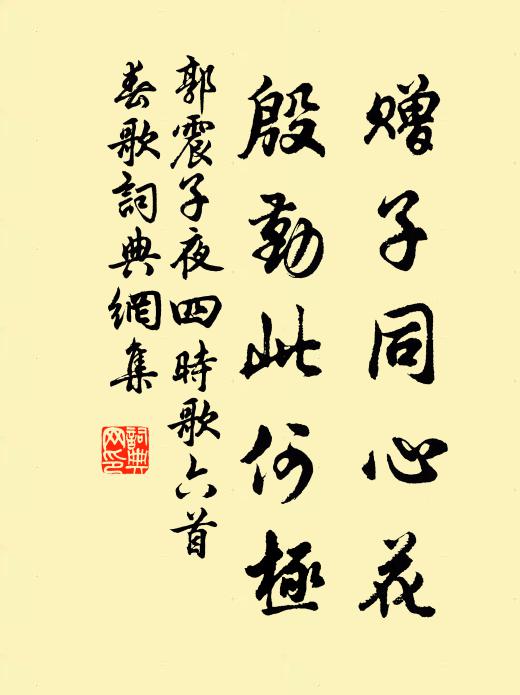 赠子同心花
殷勤此何極
郭震子夜四時歌六首
春歌詞典網集
詞典网印